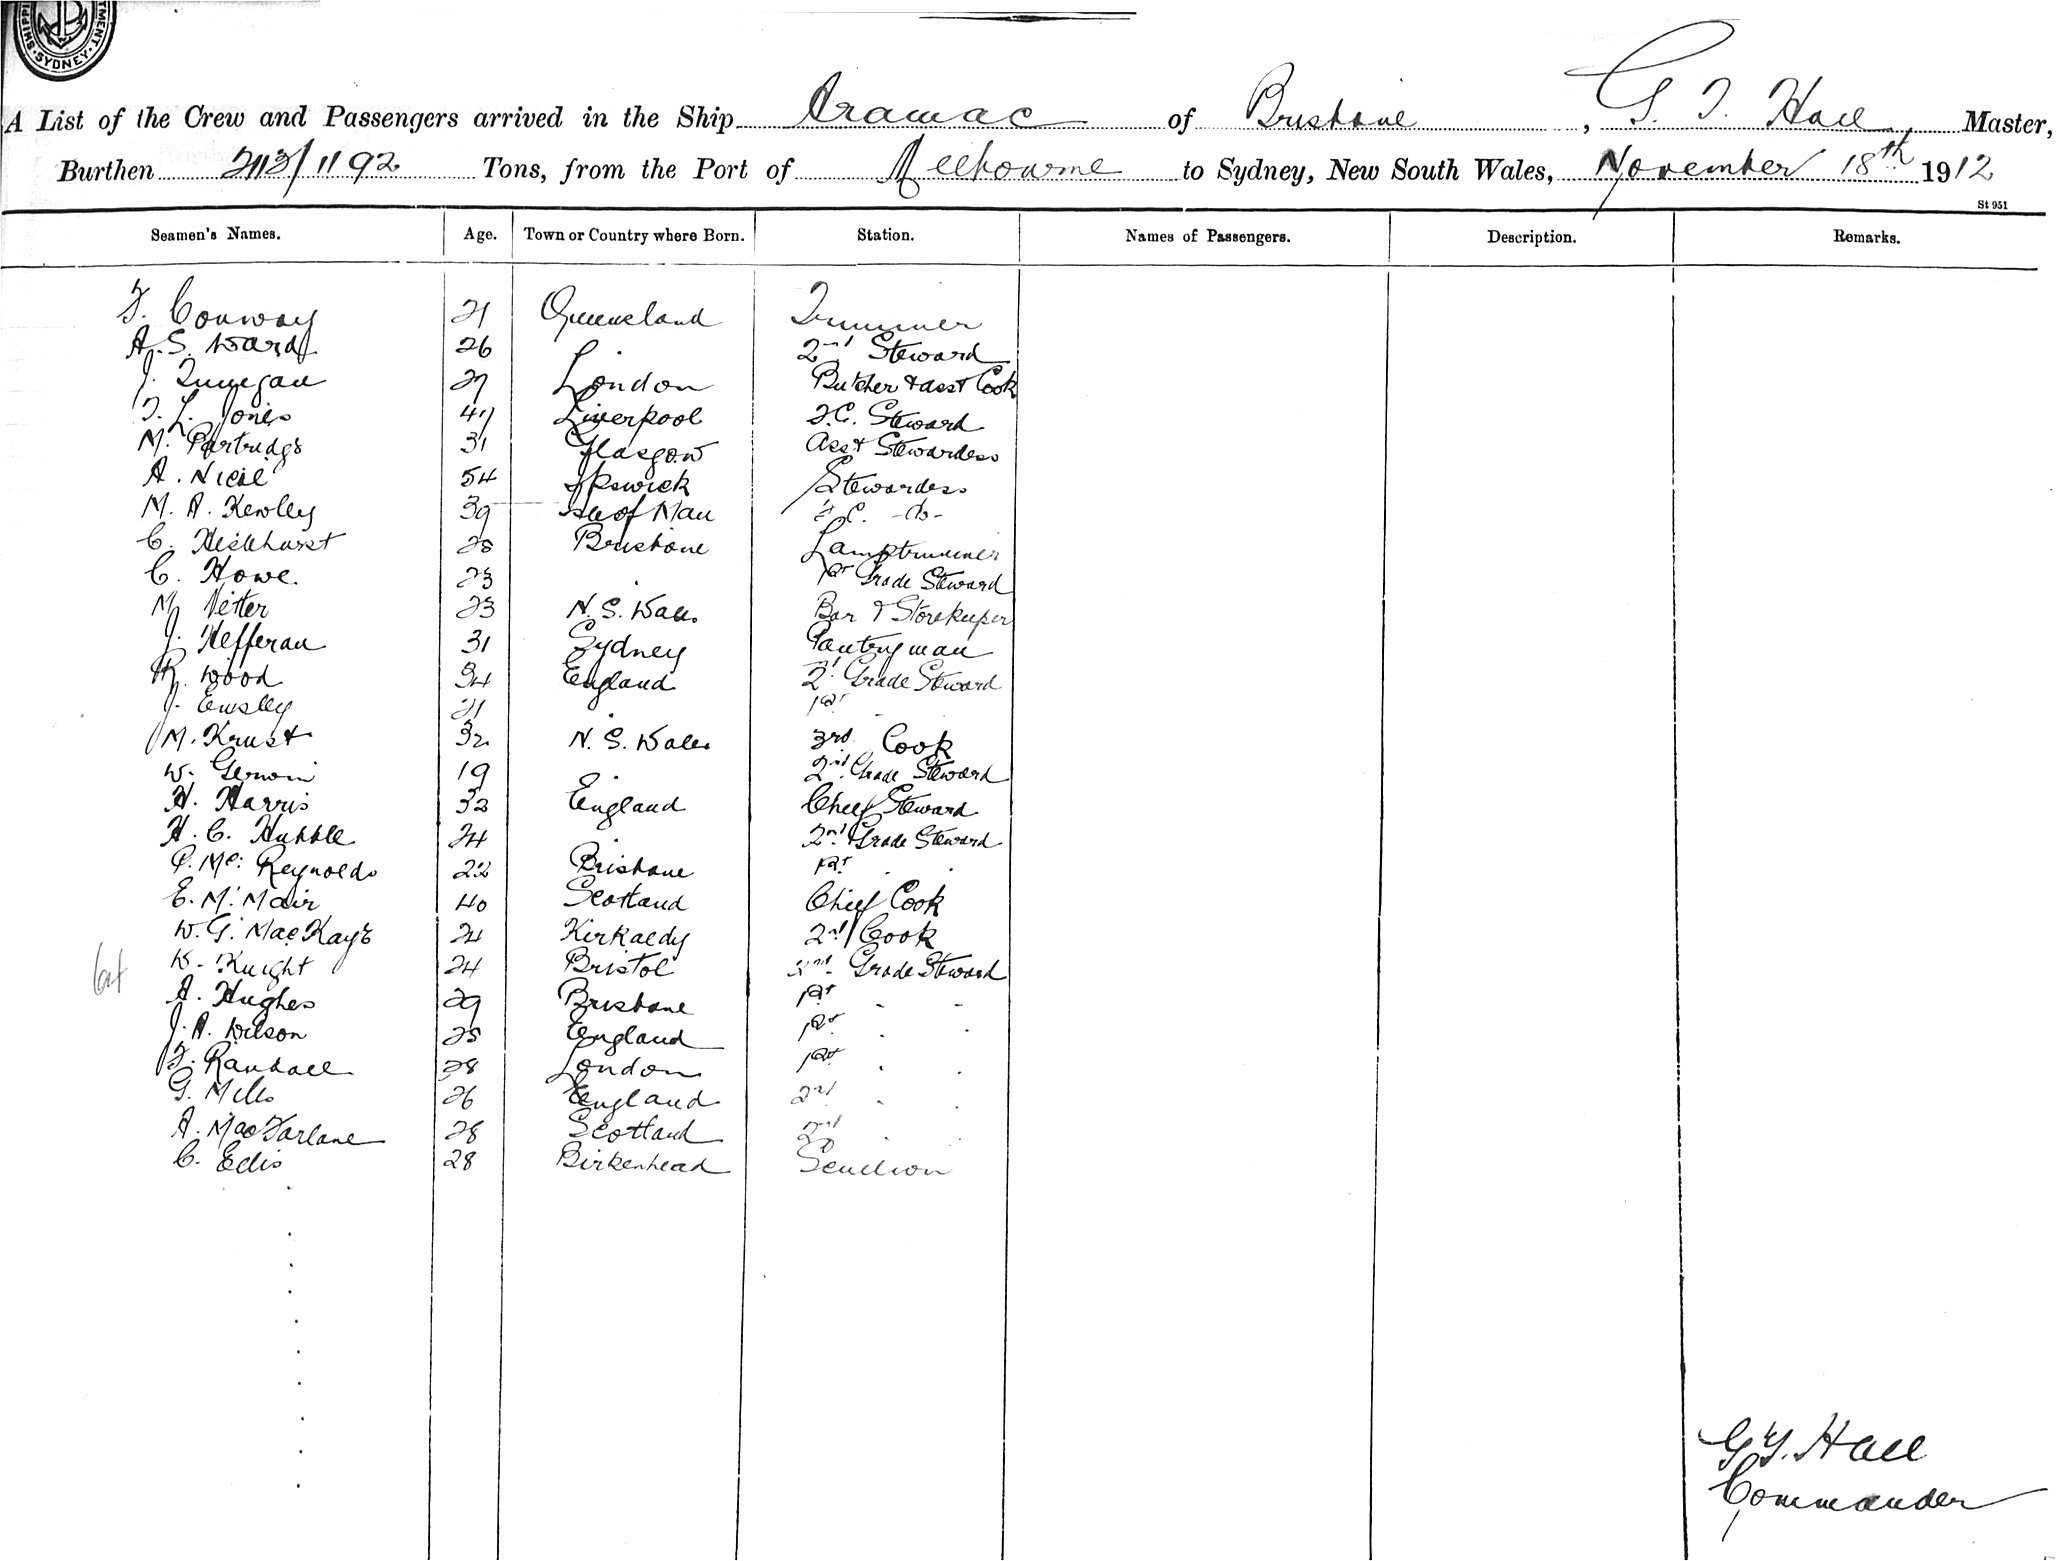 SHIPPI TMENT. SYDNEY.
A List of the Crew and Passengers arrived in the Ship Aramac of Brisbane, G. T. Hall, Master,
Burthen 2113/1192 Tons, from the Port of Melbourne to Sydney, New South Wales, November 18th 1912
St 951
Seamen's Names. Age. Town or Country where Born. Station. Names of Passengers. Description. Remarks.
T. Conway 21 Queensland Trimmer
A. S. Ward 26 2nd Steward
J. Finnegan 27 London Butcher & asst Cook
T. L. Jones 47 Liverpool F.C. Steward
M. Partridge 31 Glasgow Asst Stewardess
A. Nicol 54 Ipswick Stewardess
M. A. Kewley 39 Isle of Man C. -do-
C. 28 Brisbane Lamptrimmer
C. Howe. 23 1st Grade Steward
M Vetter 23 N. S. Wales Bar & Storekeeper
J. Hefferan 31 Sydney Pantryman
R. Wood 34 England 2nd Grade Steward
J. Emsley 21 1st
M. Krust 32 N. S. Wales 3rd Cook
W. 19 2nd Grade Steward
H. Harris 32 England Chief Steward
H. C. Hubble 24 2nd Grade Steward
P. Mc Reynolds 22 Brisbane 1st
E. M. Mair 40 Scotland Chief Cook
W. G. MacKaye 24 Kirkaldy 2nd Cook
W. Knight 24 Bristol 2nd Grade Steward
A. Hughes 29 Brisbane 1st
J. A. Wilson 25 England 1st
F. Randall 28 London 1st
G. Mills 26 England 2nd
A. MacFarlane 28 Scotland 2nd
C. Ellis 28 Birkenhead Scullion
G. T. Hall
Commander